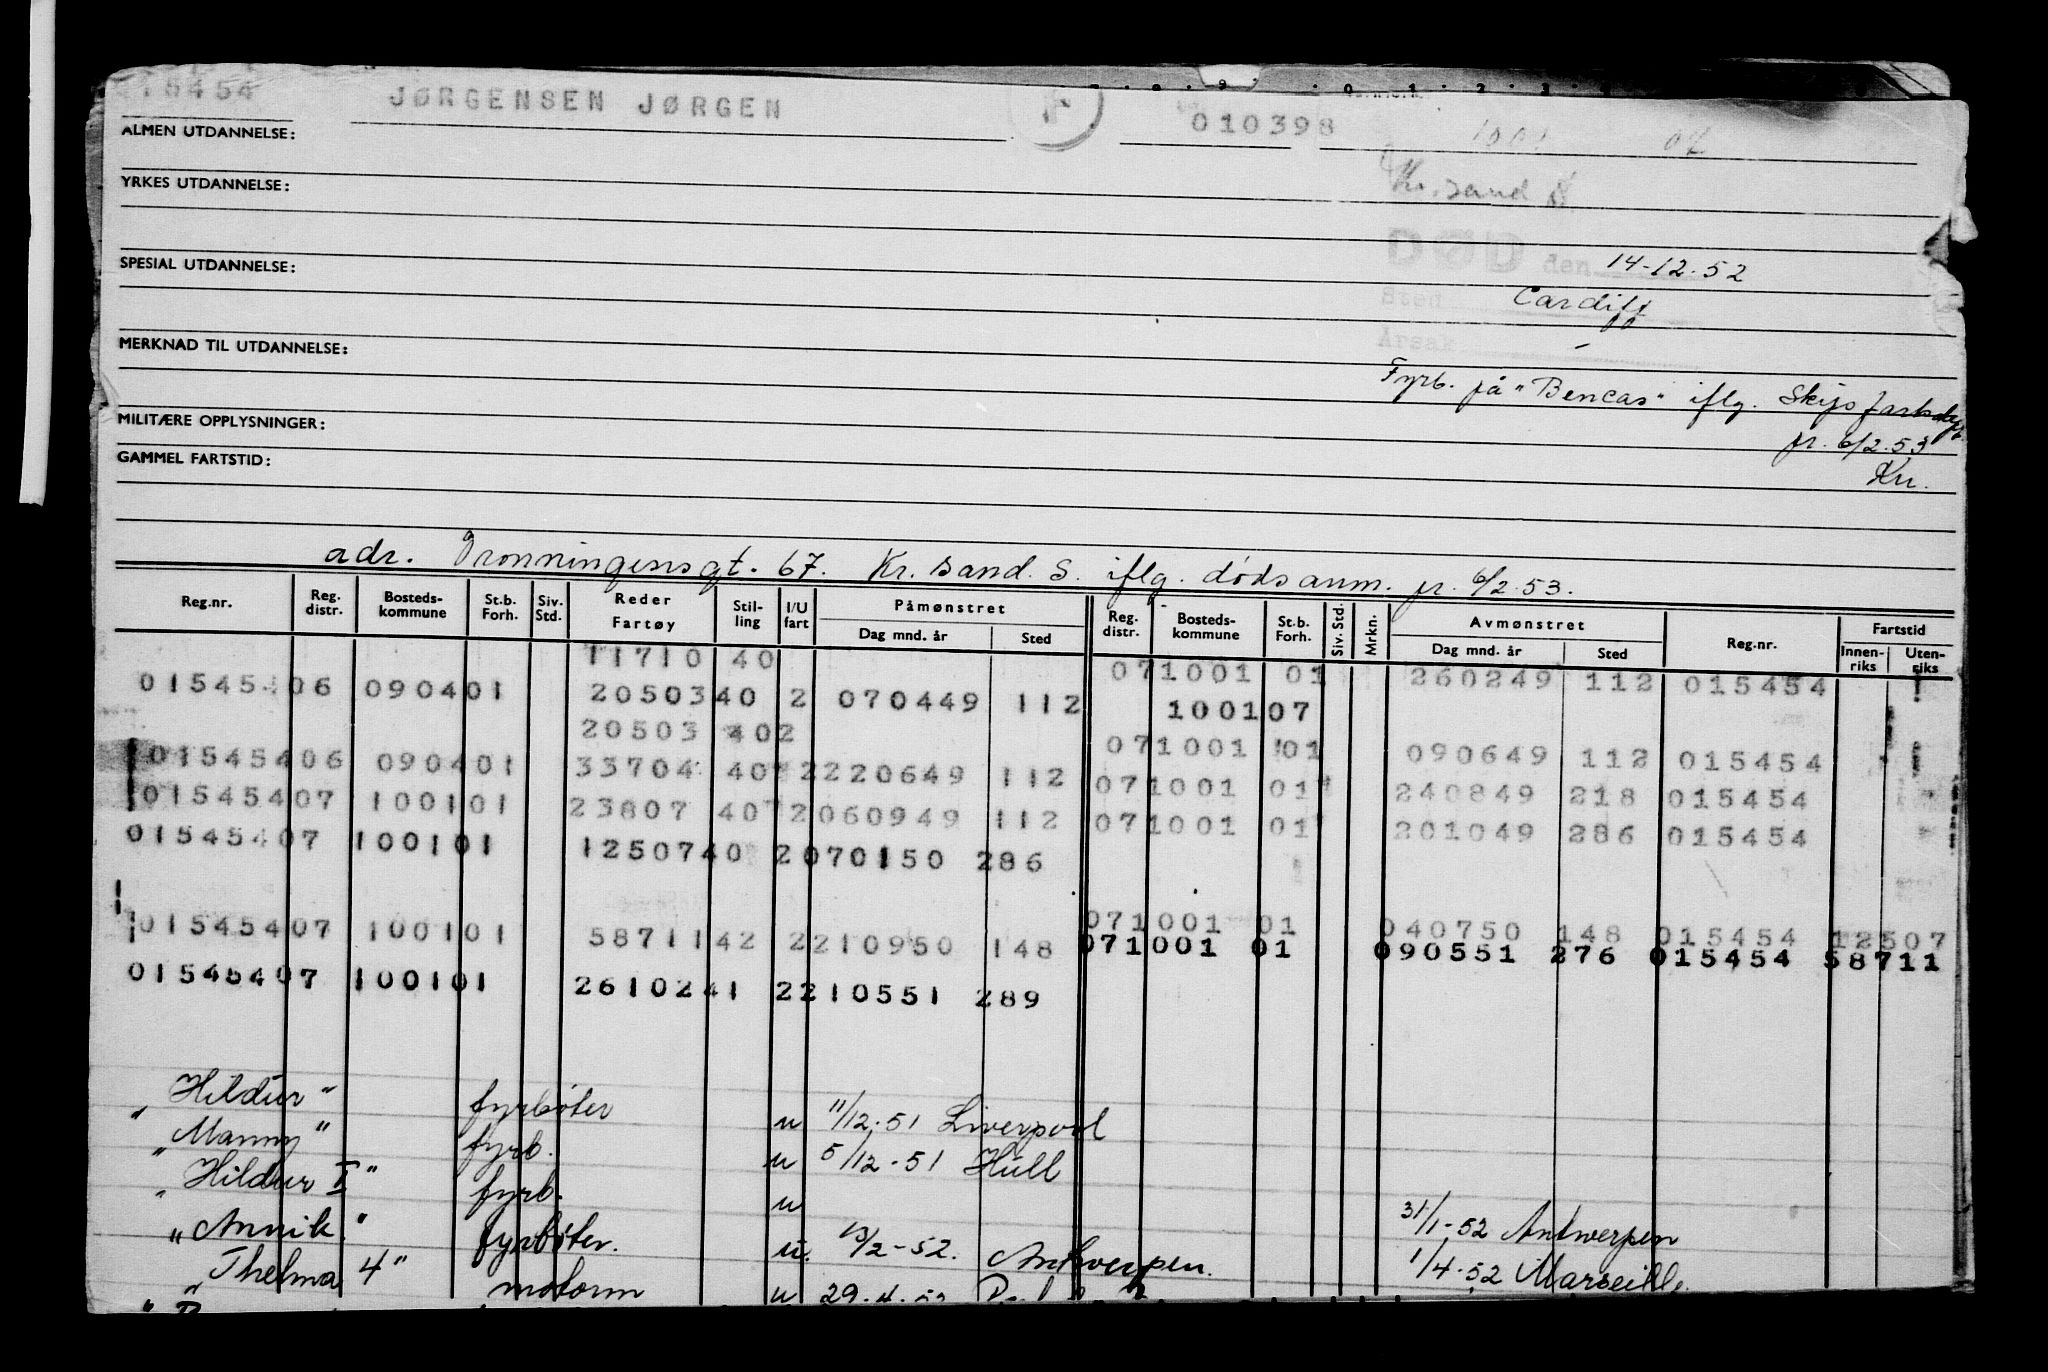 15454 JØRGENSEN JØRGEN F 010398
ALMEN UTDANNELSE: 1001 07
YRKES UTDANNELSE: Kr.sand S
DØD den 14-12-52
SPESIAL UTDANNELSE:
Sted Cardiff
Årsak -
MERKNAD TIL UTDANNELSE:
Fyrb. på "Bencas" iflg. Skipsfartsdept.
MILITÆRE OPPLYSNINGER: pr. 6/2.53
GAMMEL FARTSTID: Kn.
adr. Dronningensgt. 67. Kr.sand. S. iflg. dødsanm. pr. 6/2.53.
Reg.nr. Reg. distr. Bosteds-kommune St.b. Forh. Siv. Std. Reder Fartøy Stil-ling I/U fart Påmønstret Dag mnd. år Sted Reg. distr. Bosteds-kommune St.b. Forh. Siv. Std. Mrkn. Avmønstret Dag mnd. år Sted Reg.nr. Fartstid Innen-riks Uten-riks
11710 40 071001 01 260249 112 015454
015454 06 090401 20503 40 2 070449 112 100107
20503 402 071001 01 090649 112 015454
01545406 090401 33704 40 2220649 112 071001 01 240849 218 015454
01545407 100101 23807 40 2060949 112 071001 01 201049 286 015454
01545407 100101 1250740 2070150 286
071001 01 040750 148 015454 12507
01545407 100101 5871142 2210950 148 071001 01 090551 276 015454 58711
01545407 100101 2610241 2210551 289
"Hildur" fyrbøter u 11/12.51 Liverpool
"Manny" fyrb. u 5/12-51 Hull
"Hildur I" fyrb. u 31/1-52 Antwerpen
"Annik" fyrbøter. u. 13/2-52. Antwerpen. 1/4.52 Marseille.
"Thelma 4" motorm u 29-4-52